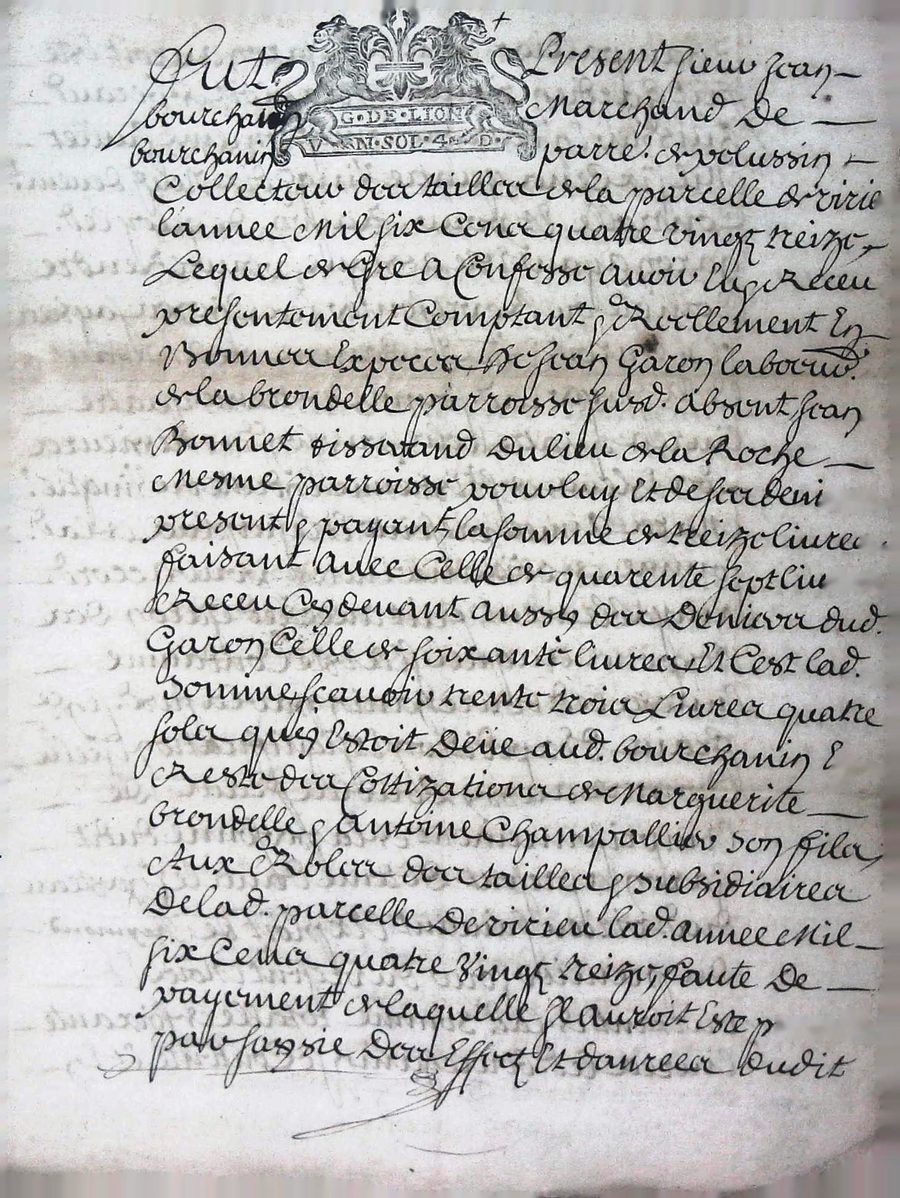 Fut Present sieur Jean
bourchanin Marchand De
bourchanin parre. de polussin
Collecteur des tailles de la parcelle de virie
l'annee Mil six Cens quatre vingt treize
Lequel de Gre a Confesse avoir Eu & Receu
presentement Comptant & Reellement En
Bonnes Expeces De Jean Garon laboeur.
de la brondelle parroisse susd. absent Jean
Bonnet tisserand du lieu de la Roche
Mesme parroisse pour luy Et de ses deni
present & payant la somme de treize livres
faisant Avec Celle de quarente sept liv
Receu Cy devant aussy des Deniers dud.
Garon Celle de soixante livres Et C'est lad.
Somme scavoir trente trois Livres quatre
sols quy Estoit Deue aud. bourchanin
Reste des Cottizations de Marguerite
brondelle & Antoine Champallier son fils
Aux Roles des tailles & subsidiaires
De lad. parcelle De virieu lad. annee Mil
six Cens quatre Vingt treize, faute De
payement de laquelle Il auroit Este p
par saysie Des Effects Et danrees dudit
G·DE·LION
V·N·SOL·4·D·